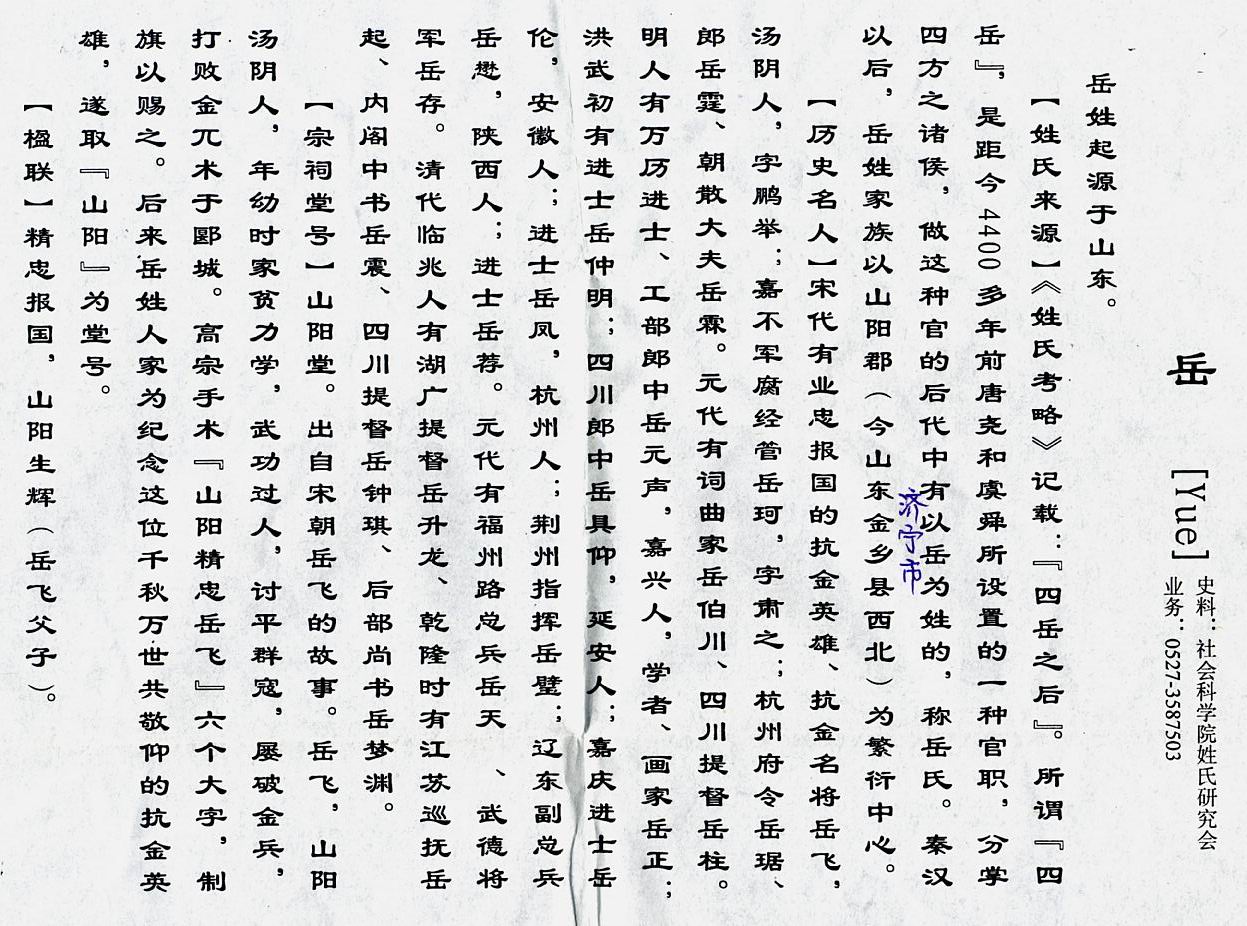 岳 [Yue]
史料：社会科学院姓氏研究会
业务：0527-3587503
岳姓起源于山东。
【姓氏来源】《姓氏考略》记载：『四岳之后』。所谓『四
岳』，是距今4400多年前唐尧和虞舜所设置的一种官职，分掌
四方之诸侯，做这种官的后代中有以岳为姓的，称岳氏。秦汉
济宁市
以后，岳姓家族以山阳郡（今山东金乡县西北）为繁衍中心。
【历史名人】宋代有业忠报国的抗金英雄、抗金名将岳飞，
汤阴人，字鹏举；嘉不军腐经管岳珂，字肃之；杭州府令岳琚、
郎岳霆、朝散大夫岳霖。元代有词曲家岳伯川、四川提督岳柱。
明人有万历进士、工部郎中岳元声，嘉兴人，学者、画家岳正；
洪武初有进士岳仲明；四川郎中岳具仰，延安人；嘉庆进士岳
伦，安徽人；进士岳凤，杭州人；荆州指挥岳璧；辽东副总兵
岳懋，陕西人；进士岳荐。元代有福州路总兵岳天、武德将
军岳存。清代临兆人有湖广提督岳升龙、乾隆时有江苏巡抚岳
起、内阁中书岳震、四川提督岳钟琪、后部尚书岳梦渊。
【宗祠堂号】山阳堂。出自宋朝岳飞的故事。岳飞，山阳
汤阴人，年幼时家贫力学，武功过人，讨平群寇，屡破金兵，
打败金兀术于郾城。高宗手术『山阳精忠岳飞』六个大字，制
旗以赐之。后来岳姓人家为纪念这位千秋万世共敬仰的抗金英
雄，遂取『山阳』为堂号。
【楹联】精忠报国，山阳生辉（岳飞父子）。